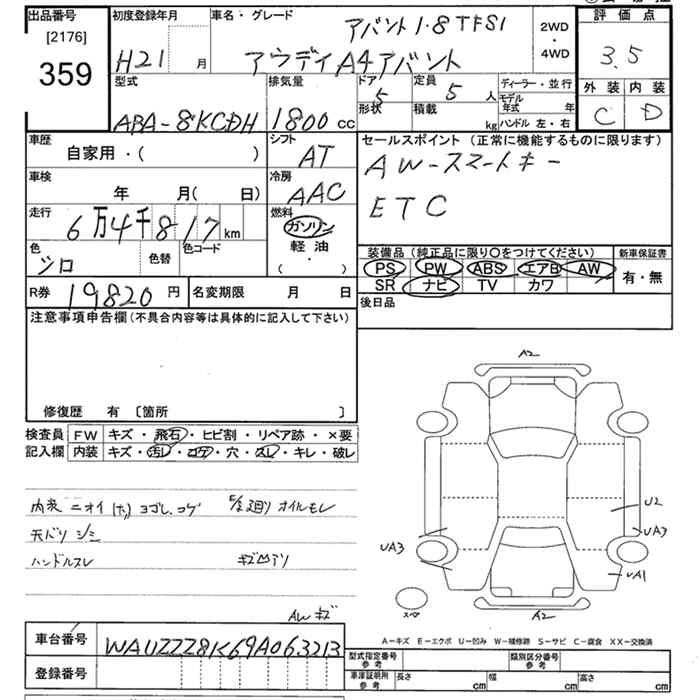 出品番号
[2176]
359
初度登録年月
H21 月
車名・グレード
アバント1.8TFSI
アウディA4アバント
2WD
・
4WD
評価点
3.5
外装 内装
C D
型式
ABA-8KCDH
排気量
1800 cc
ドア
5
形状
定員
5 人
積載
kg
ディーラー・並行
モデル年式 年
ハンドル 左・右
車歴
自家用・( )
シフト
AT
車検
年 月( 日)
冷房
AAC
走行
6万4千817km
燃料
ガソリン
軽油
( ・ )
色
シロ
色替
色コード
R券 19820 円
名変期限 月 日
セールスポイント(正常に機能するものに限ります)
AW-スマートキー
ETC
装備品(純正品に限り〇をつけてください)
PS PW ABS エアB AW
SR ナビ TV カワ
新車保証書
有・無
後日品
注意事項申告欄(不具合内容等は具体的に記入して下さい)
修復歴 有 〔箇所 〕
検査員記入欄
FW キズ・飛石・ヒビ割・リペア跡・×要
内装 キズ・汚レ・コゲ・穴・スレ・キレ・破レ
内装 ニオイ ヨゴレ、コゲ E/g廻り オイルモレ
天バリ シミ
ハンドルスレ
キズ凹アリ
AWキズ
A2
U2
UA3
UA3
UA1
A2
スペ
A-キズ E-エクボ U-凹み W-補修跡 S-サビ C-腐食 XX-交換済
車台番号 WAUZZZ8K69A063213
登録番号
型式指定番号
参考
類別区分番号
参考
車庫証明用
参考
長さ cm 幅 cm 高さ cm